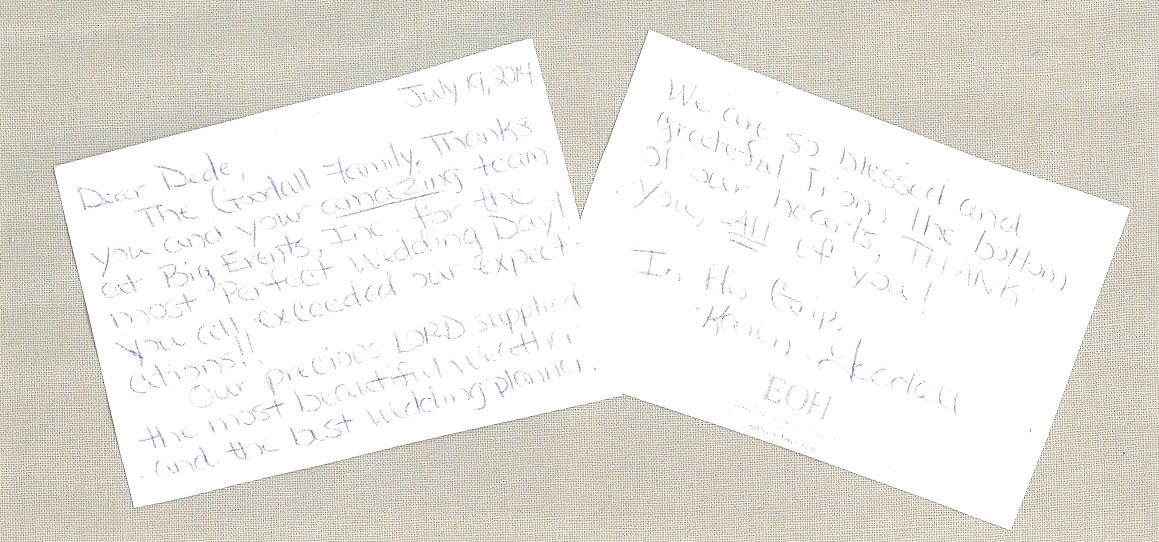 July 19, 2014
Dear Dede,
The Goodall Family, Thanks
you and your amazing team
at Big Events, Inc for the
most Perfect Wedding Day!
You all exceeded our expect-
ations!!
Our precious LORD supplied
the most beautiful weather
and the best wedding planner.
We are so blessed and
grateful. From the bottom
of our hearts, THANK
you, All of you!
In His Grip,
Karen Goodall
EOH